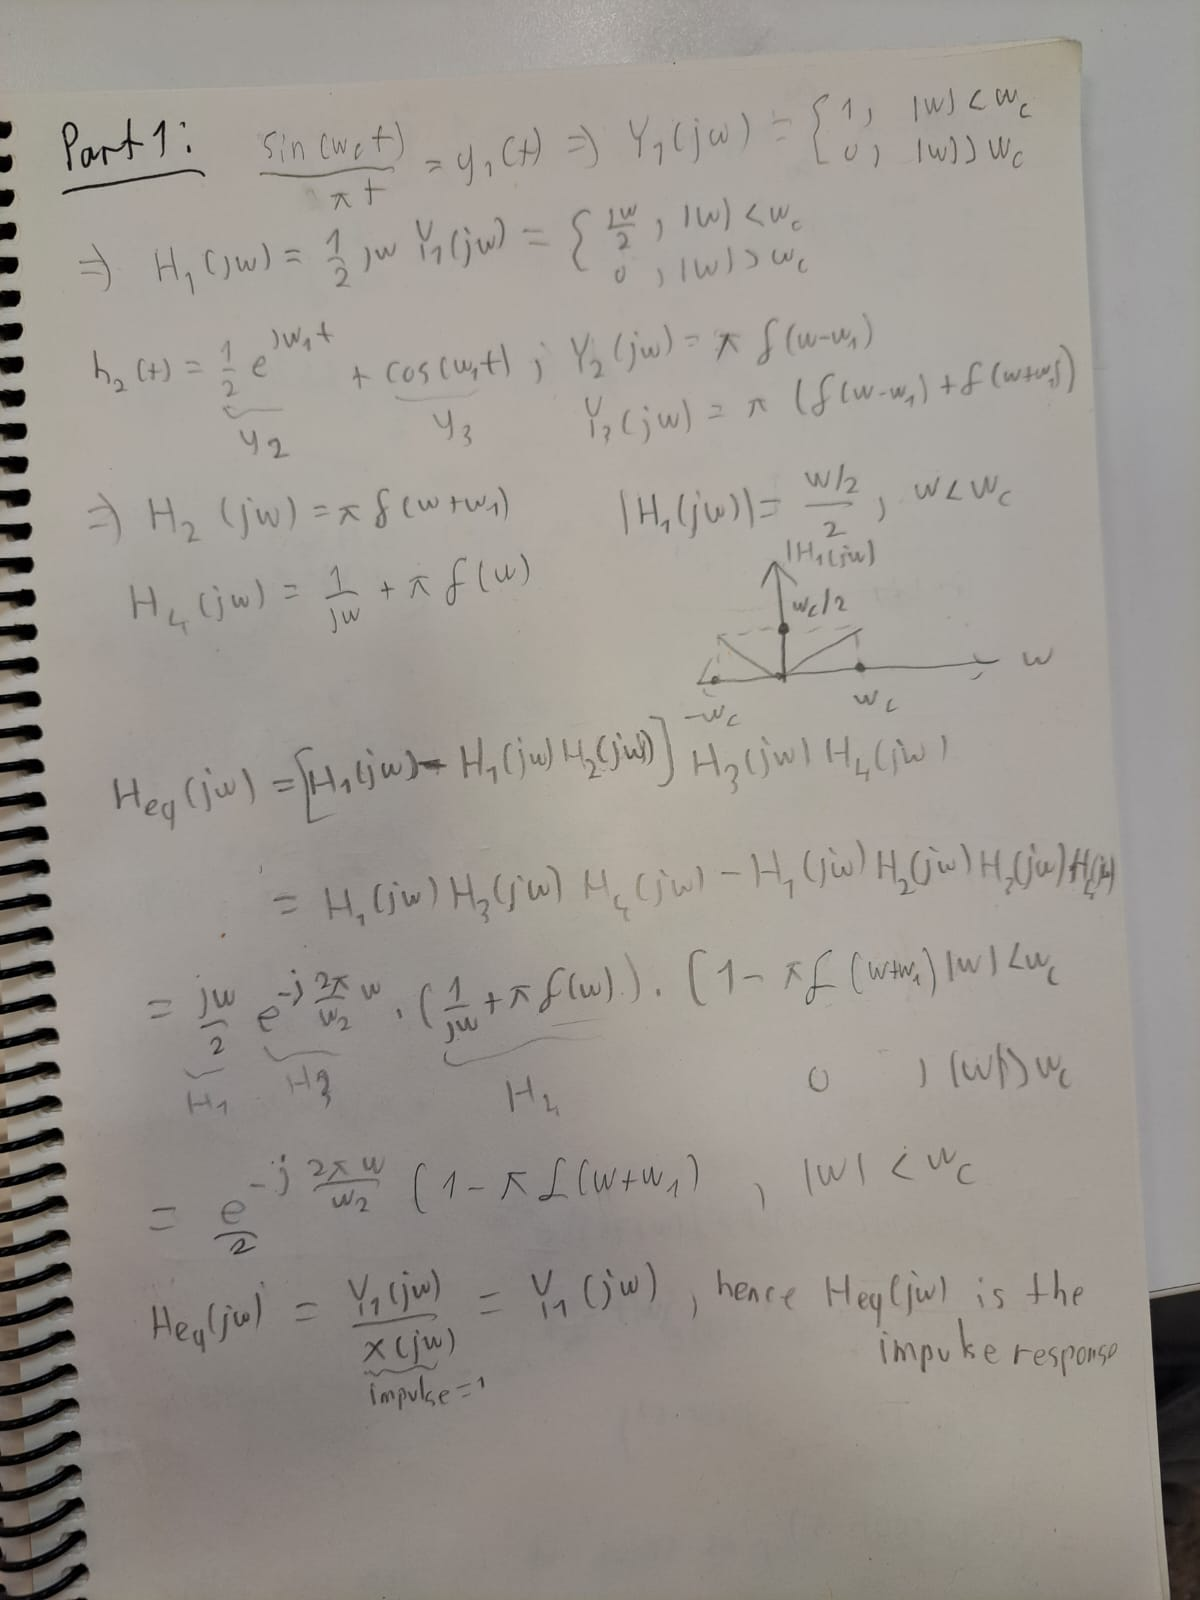 Part 1: sin(w_c t)/πt = y_1(t) ⇒ Y_1(jw) = { 1, |w| < w_c
0, |w| > w_c
⇒ H_1(jw) = 1/2 jw Y_1(jw) = { jw/2, |w| < w_c
0, |w| > w_c
h_2(t) = 1/2 e^{jw_1t} + cos(w_1t) ; Y_2(jw) = π δ(w-w_1)
y_2 y_3 Y_3(jw) = π (δ(w-w_1) + δ(w+w_1))
⇒ H_2(jw) = π δ(w+w_1) |H_1(jw)| = w/2/2, w < w_c
H_4(jw) = 1/jw + π δ(w)
|H_1(jw)|
w_c/2
w
-w_c w_c
H_eq(jw) = [H_1(jw) - H_1(jw) H_2(jw)] H_3(jw) H_4(jw)
= H_1(jw) H_3(jw) H_4(jw) - H_1(jw) H_2(jw) H_3(jw) H_4(jw)
= jw/2 e^{-j 2π/w_2 w} . (1/jw + π δ(w)) . (1 - π δ(w+w_1) |w| < w_c
H_1 H_3 H_4 0 , |w| > w_c
= e^{-j 2πw/w_2}/2 (1 - π δ(w+w_1) , |w| < w_c
H_eq(jw) = Y_1(jw)/X(jw) = Y_1(jw), hence H_eq(jw) is the
impulse = 1 impulse response